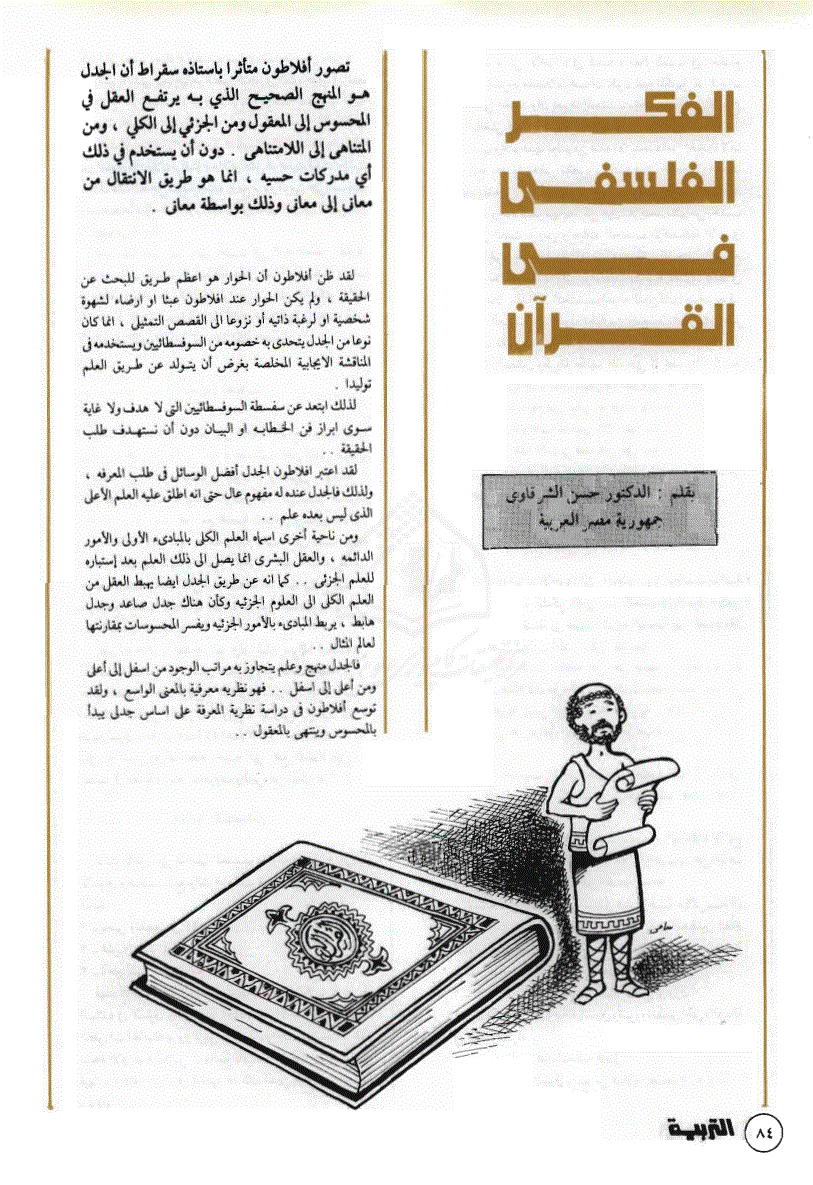 الفكر
الفلسفى
فى
القرآن
بقلم : الدكتور حسن الشرقاوى
جمهورية مصر العربية
تصور أفلاطون متأثرا باستاذه سقراط أن الجدل
هو المنهج الصحيح الذي به يرتفع العقل في
المحسوس إلى المعقول ومن الجزئي إلى الكلي ، ومن
المتناهى إلى اللامتناهى . دون أن يستخدم في ذلك
أي مدركات حسيه ، انما هو طريق الانتقال من
معانى إلى معانى وذلك بواسطة معانى .
لقد ظن أفلاطون أن الحوار هو اعظم طريق للبحث عن
الحقيقة ، ولم يكن الحوار عند افلاطون عبثا او ارضاء لشهوة
شخصية او لرغبة ذاتيه أو نزوعا الى القصص التمثيلى ، انما كان
نوعا من الجدل يتحدى به خصومه من السوفسطائيين ويستخدمه فى
المناقشة الايجابية المخلصة بغرض أن يتولد عن طريق العلم
توليدا .
لذلك ابتعد عن سفسطة السوفسطائيين التى لا هدف ولا غاية
سوى ابراز فن الخطابه او البيان دون أن نستهدف طلب
الحقيقة . .
لقد اعتبر افلاطون الجدل أفضل الوسائل فى طلب المعرفه ،
ولذلك فالجدل عنده له مفهوم عال حتى انه اطلق عليه العلم الأعلى
الذى ليس بعده علم . .
ومن ناحية أخرى اسماه العلم الكلى بالمبادىء الأولى والأمور
الدائمه ، والعقل البشرى انما يصل الى ذلك العلم بعد إستباره
للعلم الجزئى . . كما انه عن طريق الجدل ايضا يهبط العقل من
العلم الكلى الى العلوم الجزئيه وكأن هناك جدل صاعد وجدل
هابط ، يربط المبادىء بالأمور الجزئيه ويفسر المحسوسات بمقارنتها
لعالم المثال . .
فالجدل منهج وعلم يتجاوز به مراتب الوجود من اسفل إلى أعلى
ومن أعلى إلى اسفل . . فهو نظريه معرفية بالمعنى الواسع ، ولقد
توسع أفلاطون فى دراسة نظرية المعرفة على اساس جدلى يبدأ
بالمحسوس وينتهى بالمعقول . .
سامى
٨٤ التربية